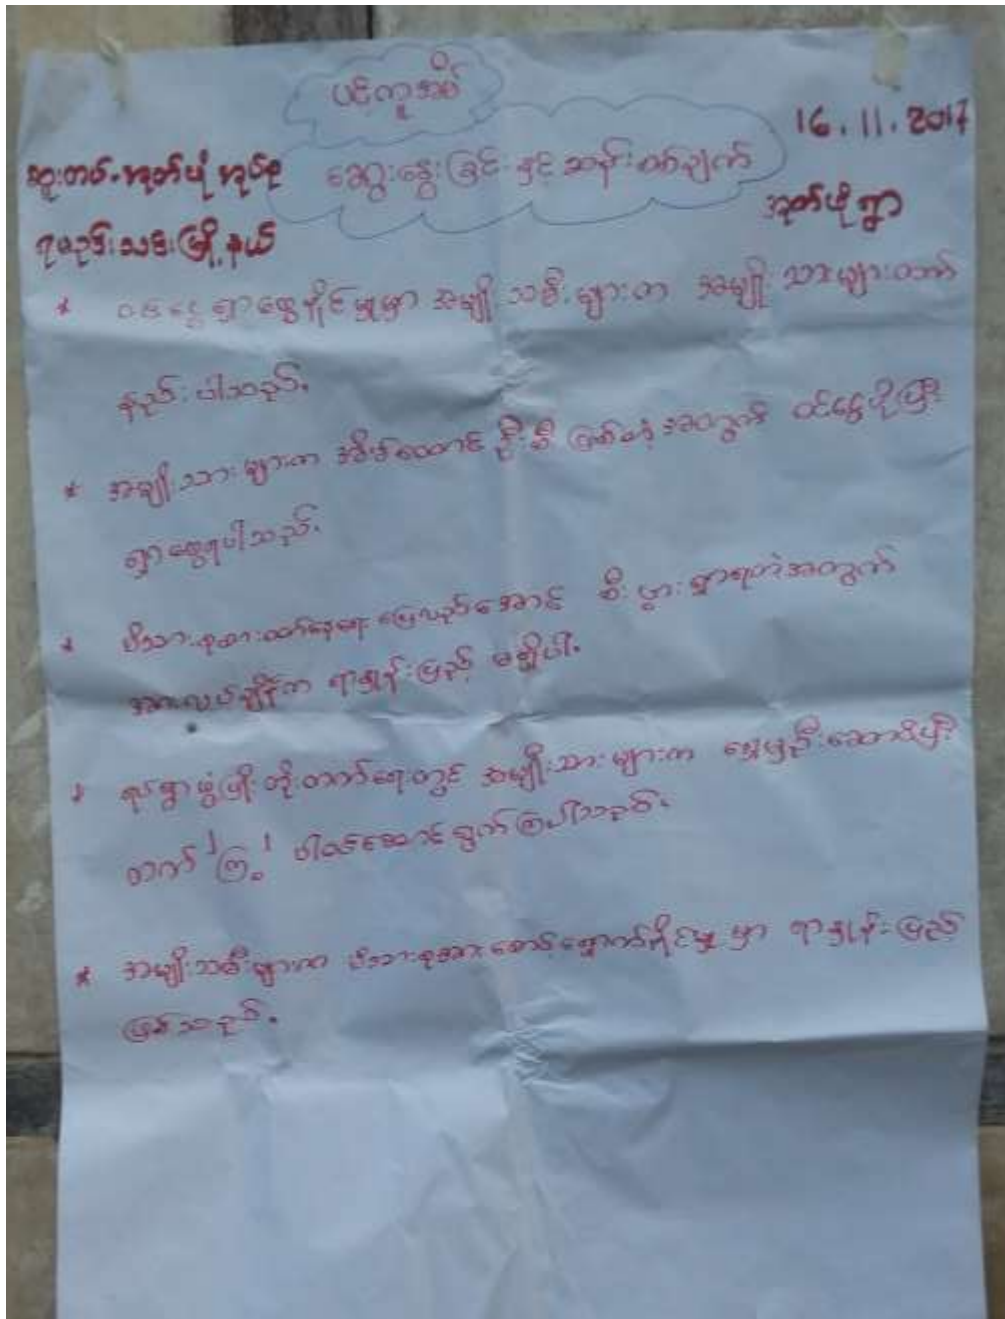 ပင့်ကူအိမ်
16.11.2017
ဆွေးနွေးခြင်းနှင့်ဆန်းစစ်ချက်
အုတ်ဖိုရွာ
မြို့နယ်
* ဝင်ငွေရှာဖွေနိုင်မှုမှာ အမျိုးသမီးများက အမျိုးသားများထက်
နည်းပါသည်.
* အမျိုးသားများက အိမ်ထောင်ဦးစီးဖြစ်တဲ့အတွက် ဝင်ငွေပိုပြီး
ရှာဖွေရပါသည်.
* မိသားစုစားဝတ်နေရေးပြေလည်အောင် စီးပွားရှာရတဲ့အတွက်
အားလပ်ချိန်က ရာနှုန်းပြည့် မရှိပါ.
* ရပ်ရွာဖွံ့ဖြိုးတိုးတက်ရေးတွင် အမျိုးသားများက ရှေ့မှဦးဆောင်ပြီး
တက်ကြွ ပါဝင်ဆောင်ရွက်ကြပါသည်.
* အမျိုးသမီးများက မိသားစုအားစောင့်ရှောက်နိုင်မှုမှာ ရာနှုန်းပြည့်
ဖြစ်သည်.